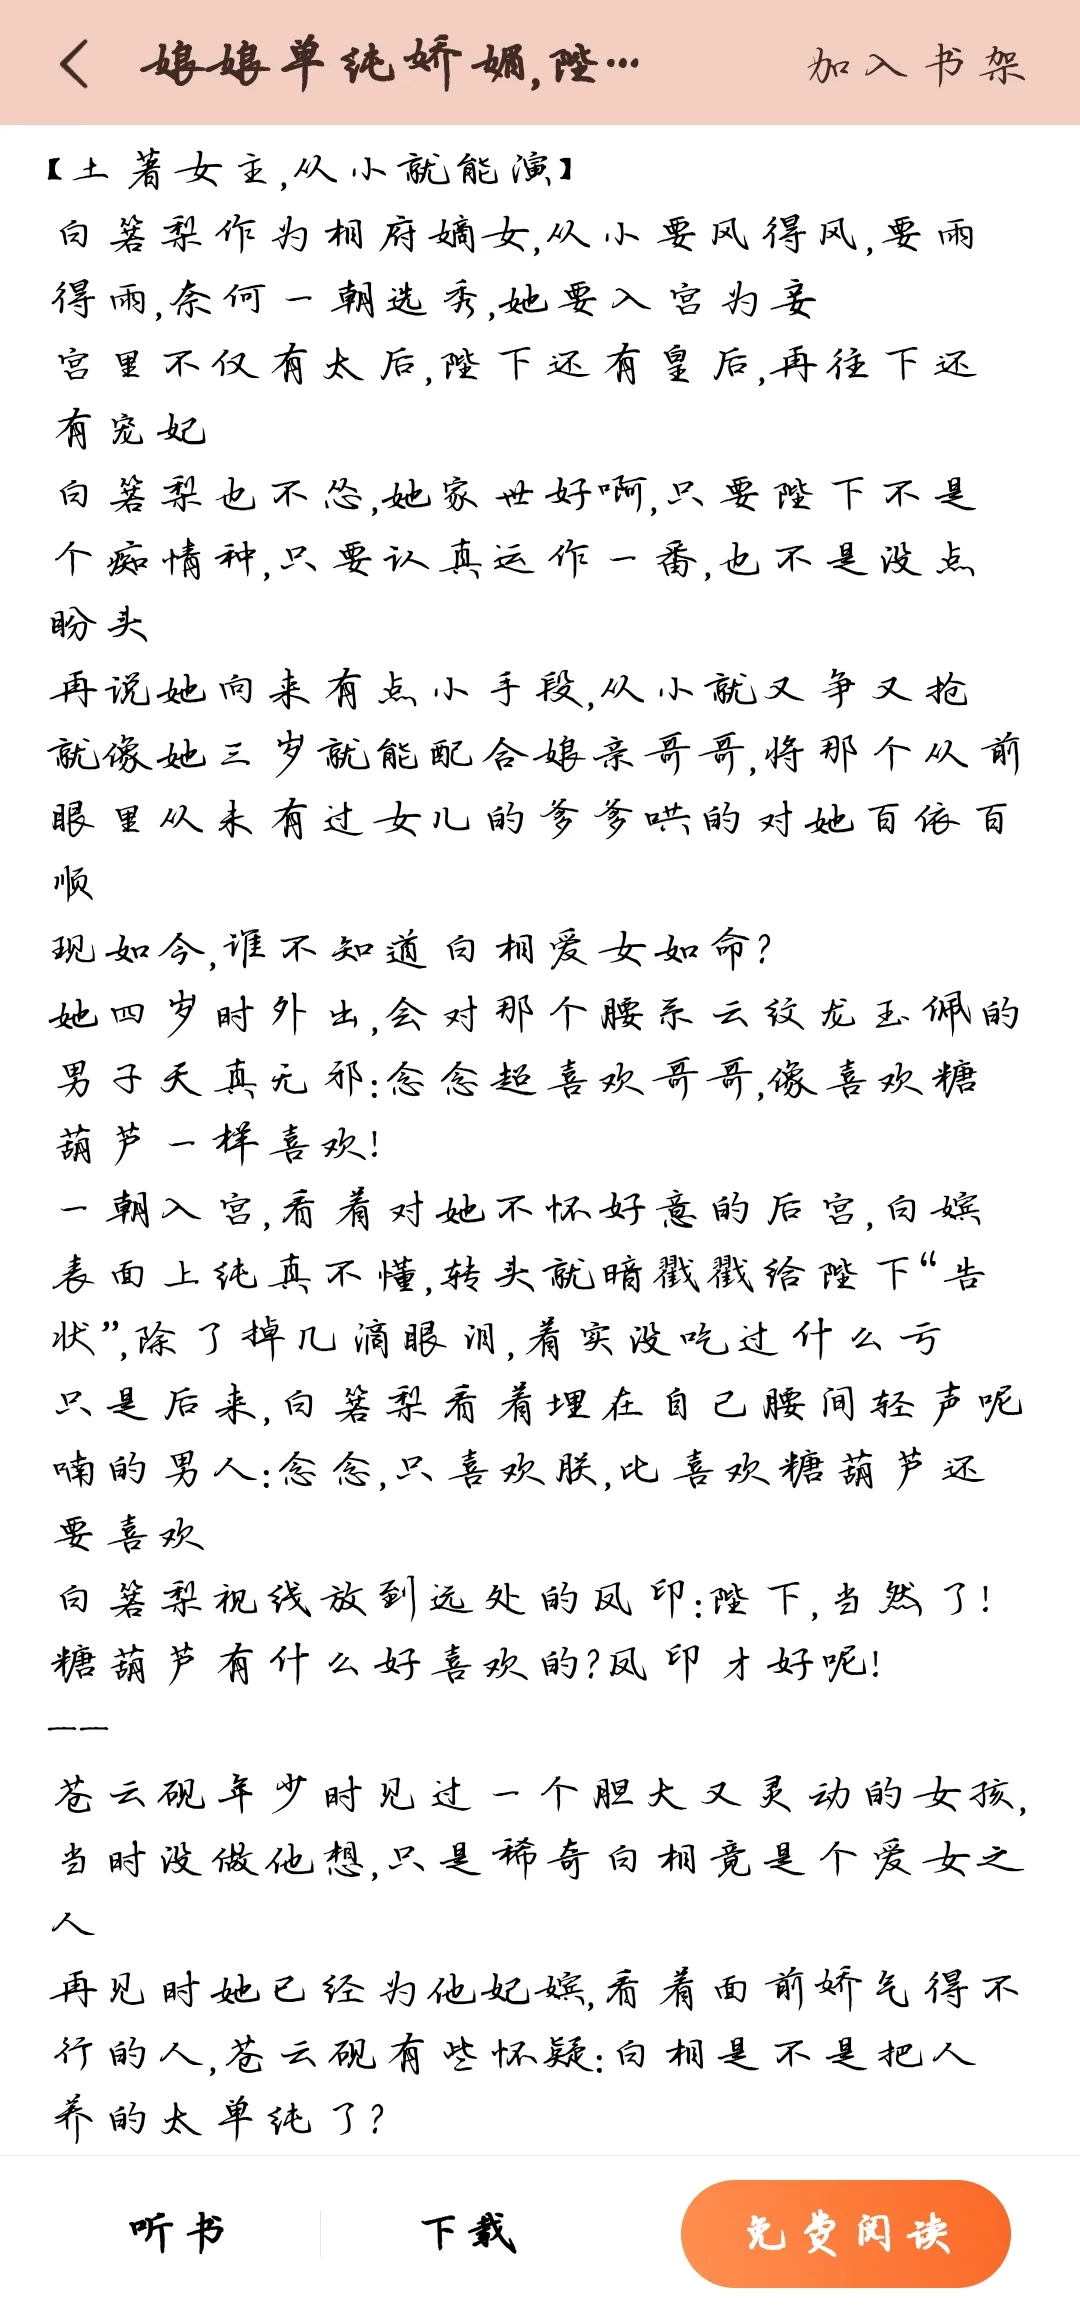 娘娘单纯娇媚,陛…
加入书架
【土著女主,从小就能演】
白箬梨作为相府嫡女,从小要风得风,要雨
得雨,奈何一朝选秀,她要入宫为妾
宫里不仅有太后,陛下还有皇后,再往下还
有宠妃
白箬梨也不怂,她家世好啊,只要陛下不是
个痴情种,只要认真运作一番,也不是没点
盼头
再说她向来有点小手段,从小就又争又抢
就像她三岁就能配合娘亲哥哥,将那个从前
眼里从未有过女儿的爹爹哄的对她百依百
顺
现如今,谁不知道白相爱女如命?
她四岁时外出,会对那个腰系云纹龙玉佩的
男子天真无邪:念念超喜欢哥哥,像喜欢糖
葫芦一样喜欢!
一朝入宫,看着对她不怀好意的后宫,白嫔
表面上纯真不懂,转头就暗戳戳给陛下“告
状”,除了掉几滴眼泪,着实没吃过什么亏
只是后来,白箬梨看着埋在自己腰间轻声呢
喃的男人:念念,只喜欢朕,比喜欢糖葫芦还
要喜欢
白箬梨视线放到远处的凤印:陛下,当然了!
糖葫芦有什么好喜欢的?凤印才好呢!
——
苍云砚年少时见过一个胆大又灵动的女孩,
当时没做他想,只是稀奇白相竟是个爱女之
人
再见时她已经为他妃嫔,看着面前娇气得不
行的人,苍云砚有些怀疑:白相是不是把人
养的太单纯了?
听书
下载
免费阅读